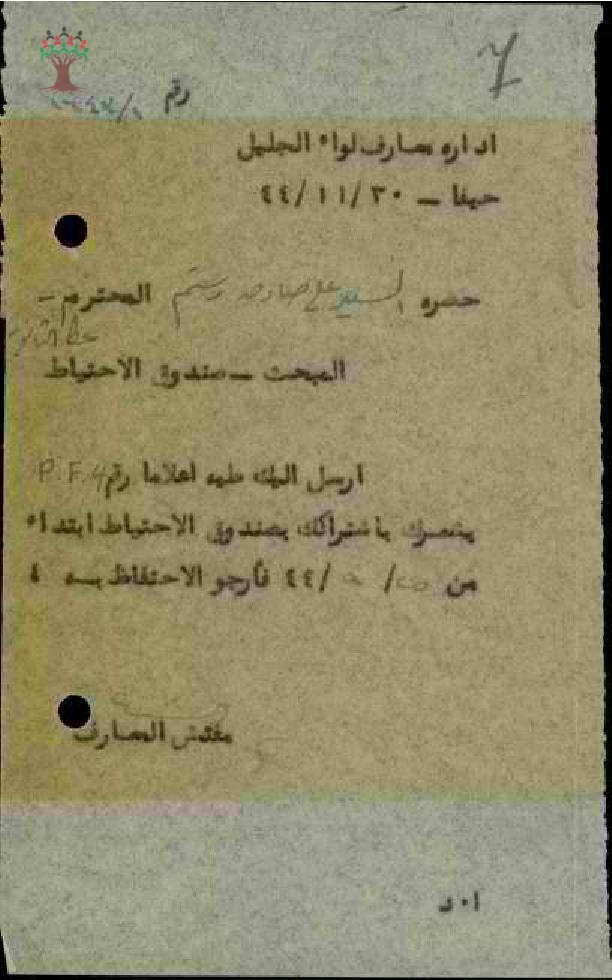 7
رقم
اداره معارف لواء الجليل
حيفا - ٤٤/١١/٣٠
حضره السيد علي صادق رستم المحترم -
المبحث - صندوق الاحتياط
ارسل اليك طيه اعلاما رقم P.F.4
يشعرك باشتراكك بصندوق الاحتياط ابتداء
من / /٤٤ فأرجو الاحتفاظ به ٤
مفتش المعارف
ا٠د